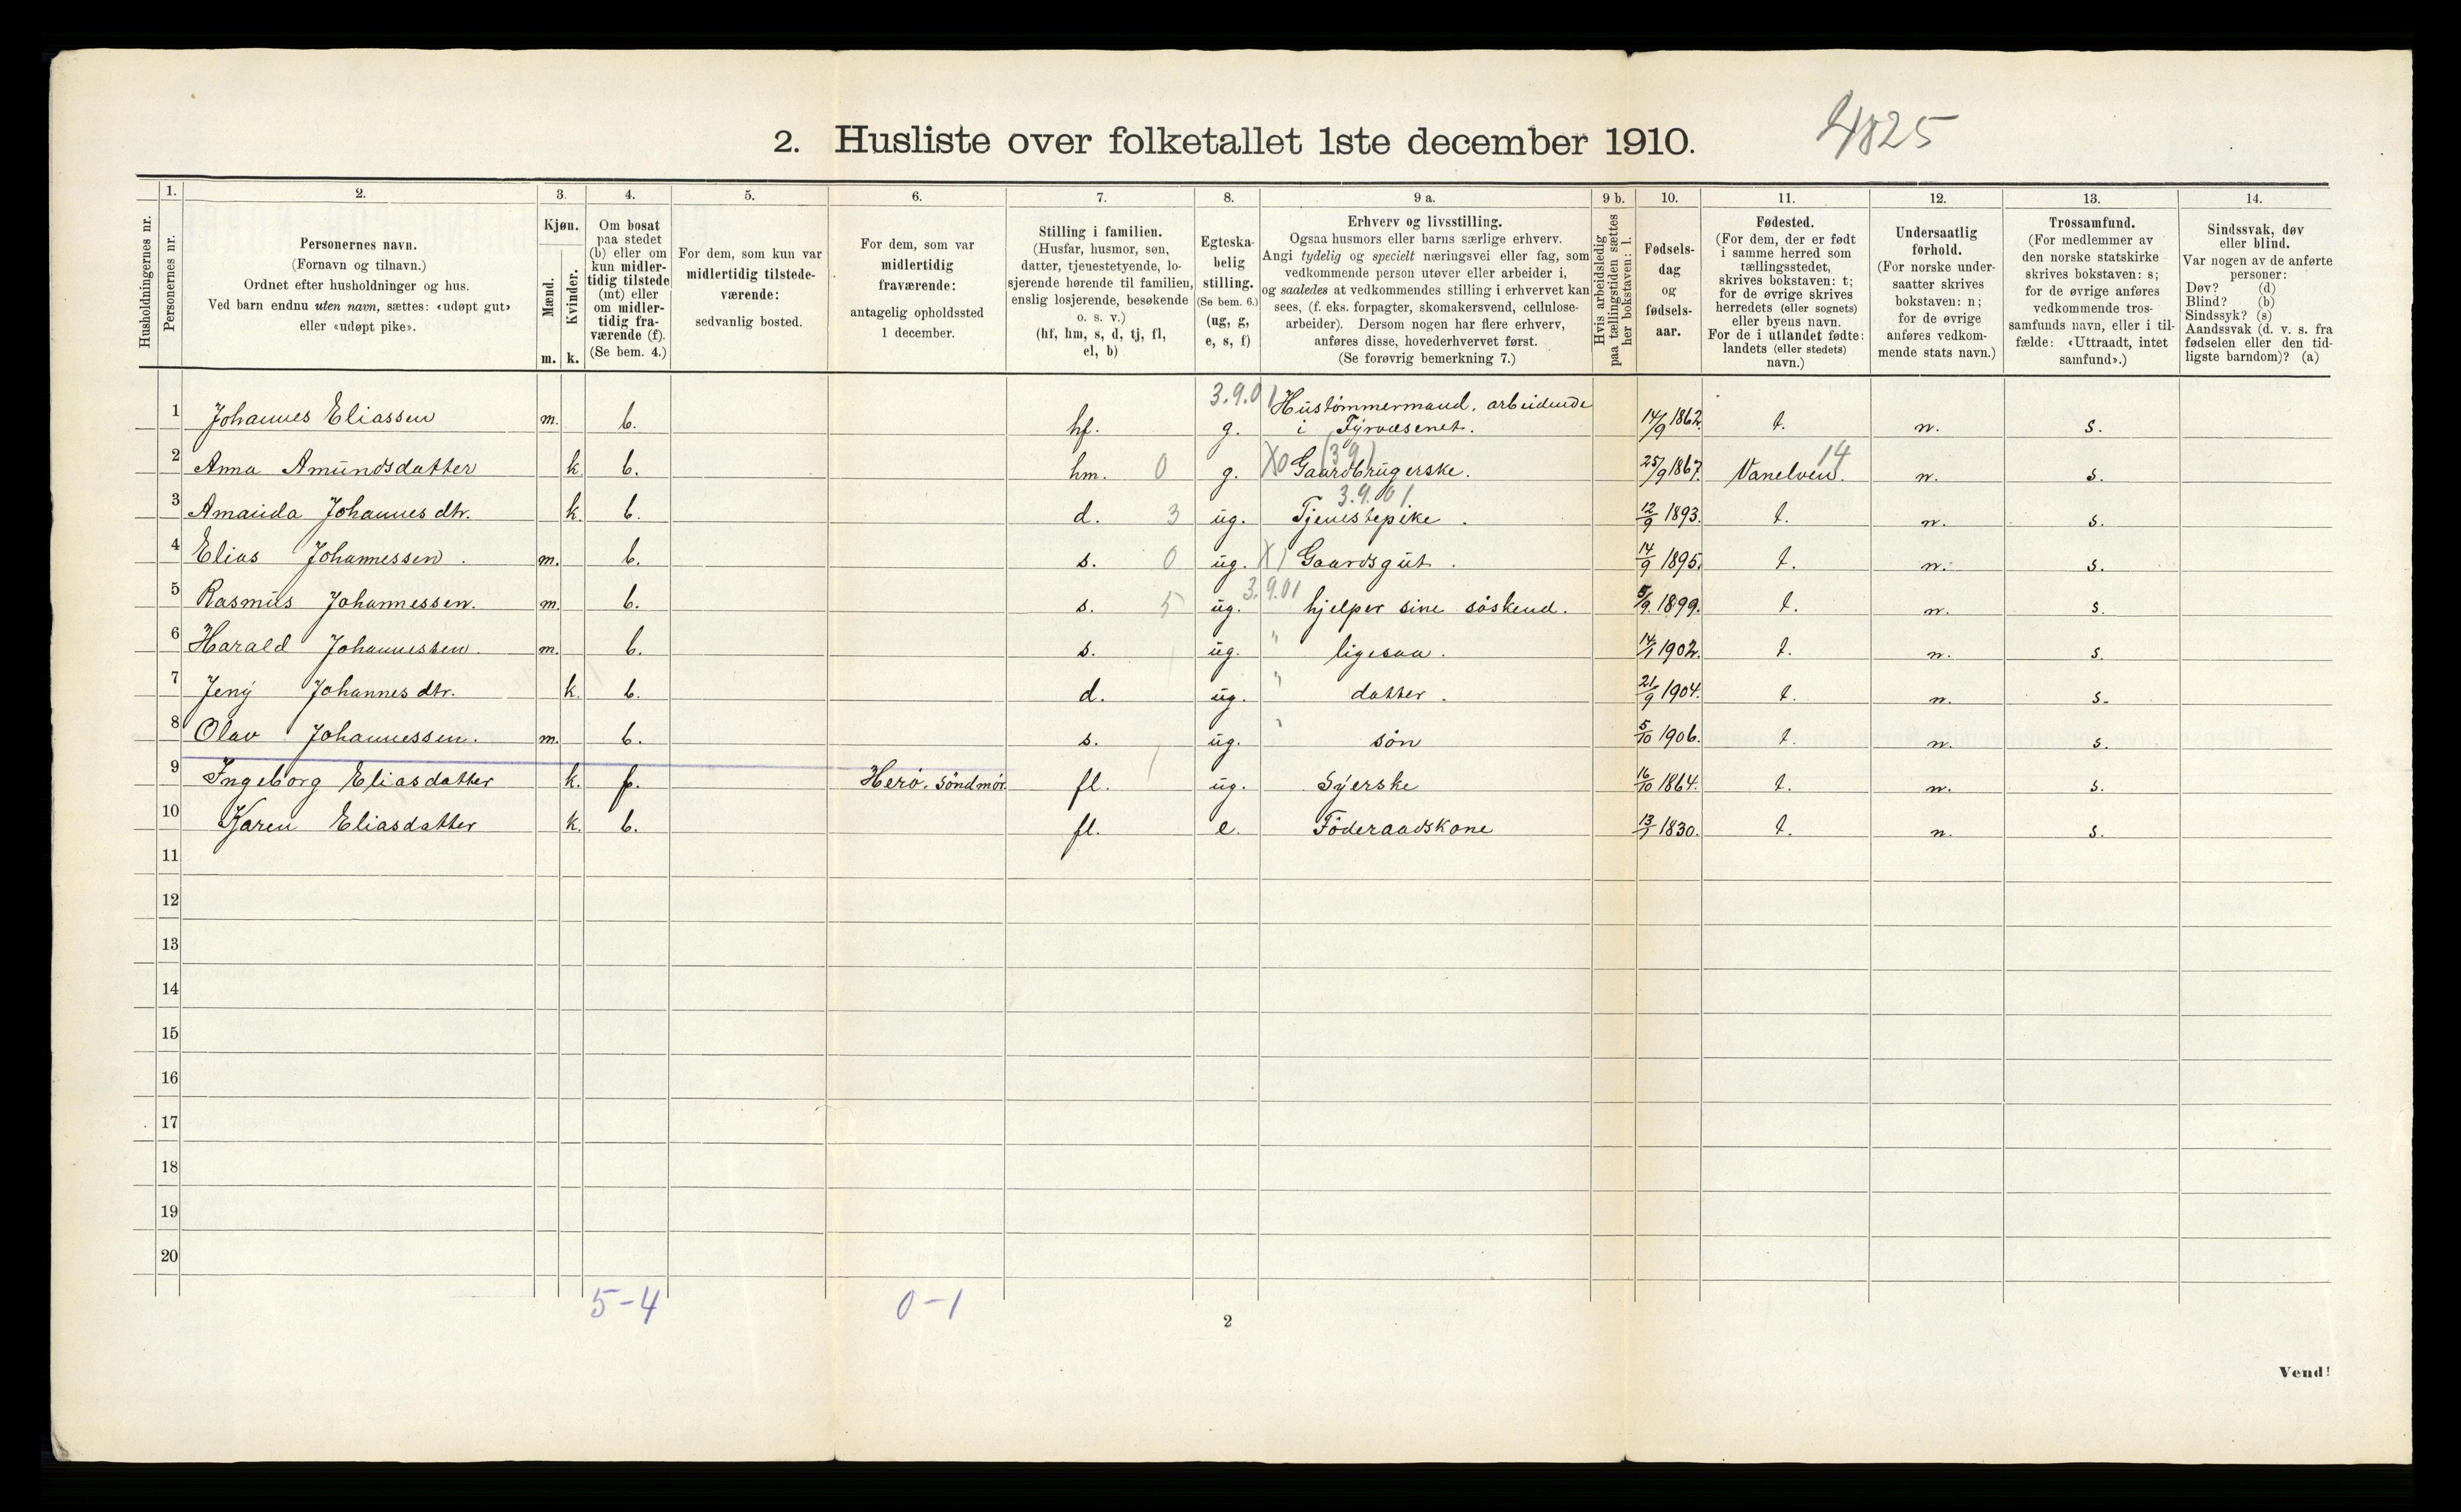 2. Husliste over folketallet 1ste december 1910.
4825
1. 2. 3. 4. 5. 6. 7. 8. 9 a. 9 b. 10. 11. 12. 13. 14.
Husholdningernes nr.
Personernes nr.
Personernes navn.
(Fornavn og tilnavn.)
Ordnet efter husholdninger og hus.
Ved barn endnu uten navn, sættes: «udøpt gut»
eller «udøpt pike».
Kjøn.
Mænd.
m.
Kvinder.
k.
Om bosat
paa stedet
(b) eller om
kun midler-
tidig tilstede
(mt) eller
om midler-
tidig fra-
værende (f).
(Se bem. 4.)
For dem, som kun var
midlertidig tilstede-
værende:
sedvanlig bosted.
For dem, som var
midlertidig
fraværende:
antagelig opholdssted
1 december.
Stilling i familien.
(Husfar, husmor, søn,
datter, tjenestetyende, lo-
sjerende hørende til familien,
enslig losjerende, besøkende
o. s. v.)
(hf, hm, s, d, tj, fl,
el, b)
Egteska-
belig
stilling.
(Se bem. 6.)
(ug, g,
e, s, f)
Erhverv og livsstilling.
Ogsaa husmors eller barns særlige erhverv.
Angi tydelig og specielt næringsvei eller fag, som
vedkommende person utøver eller arbeider i,
og saaledes at vedkommendes stilling i erhvervet kan
sees, (f. eks. forpagter, skomakersvend, cellulose-
arbeider). Dersom nogen har flere erhverv,
anføres disse, hovederhvervet først.
(Se forøvrig bemerkning 7.)
Hvis arbeidsledig
paa tællingstiden sættes
her bokstaven: l.
Fødsels-
dag
og
fødsels-
aar.
Fødested.
(For dem, der er født
i samme herred som
tællingsstedet,
skrives bokstaven: t;
for de øvrige skrives
herredets (eller sognets)
eller byens navn.
For de i utlandet fødte:
landets (eller stedets)
navn.)
Undersaatlig
forhold.
(For norske under-
saatter skrives
bokstaven: n;
for de øvrige
anføres vedkom-
mende stats navn.)
Trossamfund.
(For medlemmer av
den norske statskirke
skrives bokstaven: s;
for de øvrige anføres
vedkommende tros-
samfunds navn, eller i til-
fælde: «Uttraadt, intet
samfund».)
Sindssvak, døv
eller blind.
Var nogen av de anførte
personer:
Døv? (d)
Blind? (b)
Sindssyk? (s)
Aandssvak (d. v. s. fra
fødselen eller den tid-
ligste barndom)? (a)
3.9.01 Hustømmermand, arbeidende
1 Johannes Eliassen m. b. hf. g. i Fyrvæsenet. 14/9 1862. t. n. s.
(39) 14
2 Anna Amundsdatter k b. hm. 0 g. X0 Gaardbrugerske. 25/9 1867. Vanelven. n. s.
3.9.01
3 Amanda Johannesdtr. k. b. d. 3 ug. Tjenestepike. 12/9 1893. t. n. s.
4 Elias Johannessen. m. b. s. 0 ug. X1 Gaardsgut. 14/9 1895. t. n. s.
3.9.01
5 Rasmus Johannessen. m. b. s. 5 ug. hjelper sine søskend. 5/9. 1899. t. n. s.
6 Harald Johannessen. m. b. s. ug. " ligesaa. 14/1 1902. t. n. s.
7 Jeny Johannesdtr. k. b. d. ug. " datter. 21/9 1904. t. n. s.
8 Olav Johannessen. m. b. s. ug. " søn 5/10 1906. t. n. s.
9 Ingeborg Eliasdatter k. f. Herø, Søndmør. fl. ug. Syerske 16/10 1864. t. n. s.
10 Karen Eliasdatter k. b. fl. e. Føderaadskone 13/1 1830. t. n. s.
11
12
13
14
15
16
17
18
19
20
5-4 0-1
2
Vend!